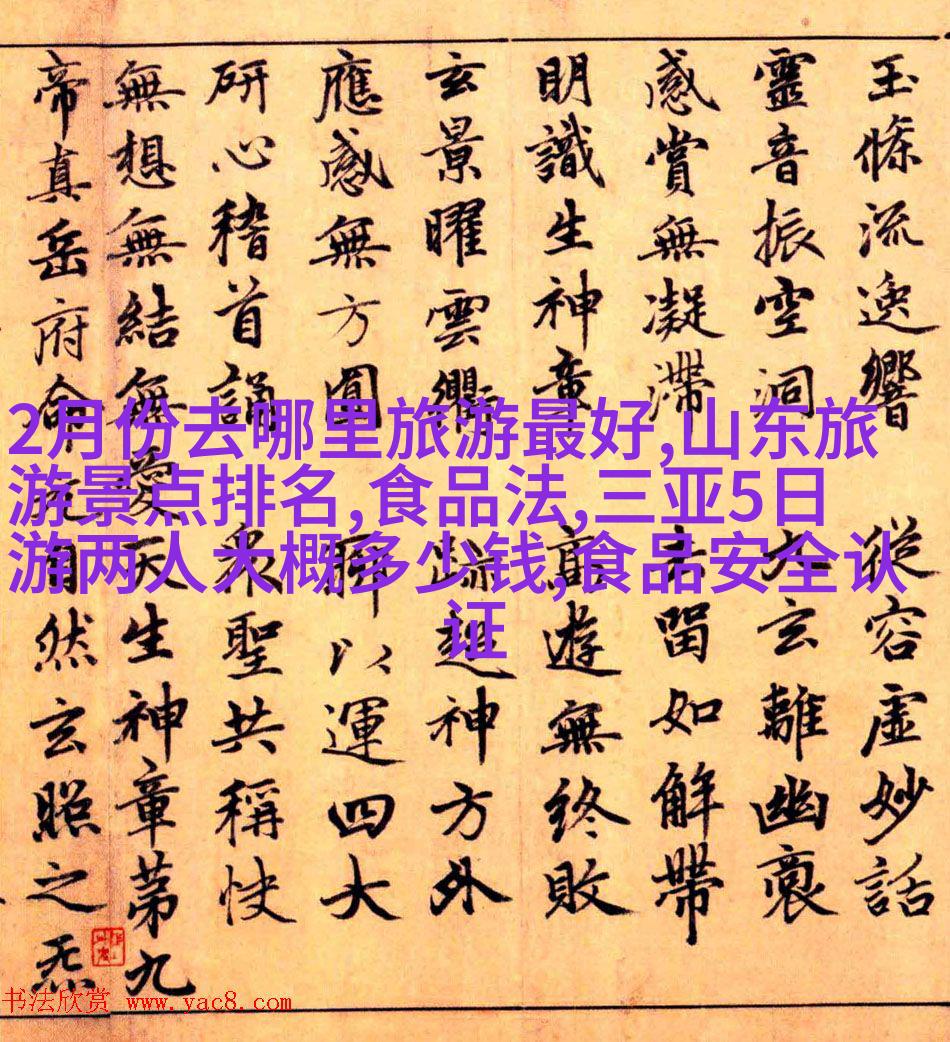 玉條流逸響從容虛妙話
靈音振空洞玄離幽裒
感賞無凝滯留如解帶
明識生神章遊無終敗
玄景曜雲衢跡超神方外
應感無方圓聊以運四大
研心稽首誦衆聖共稱快
無想無結無愛天生神章第九
帝真岳府命自然玄照之炁
2月份去哪里旅游最好,山东旅
游景点排名,食品法,三亚5日
游两人大概多少钱,食品安全认
证
书法欣赏 www.yac8.com